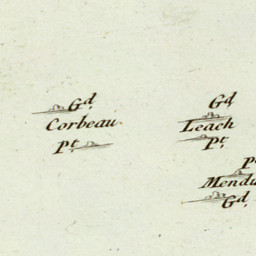 Gd.
Corbeau.
Pt.
Gd.
Leach
Pt.
Gd.